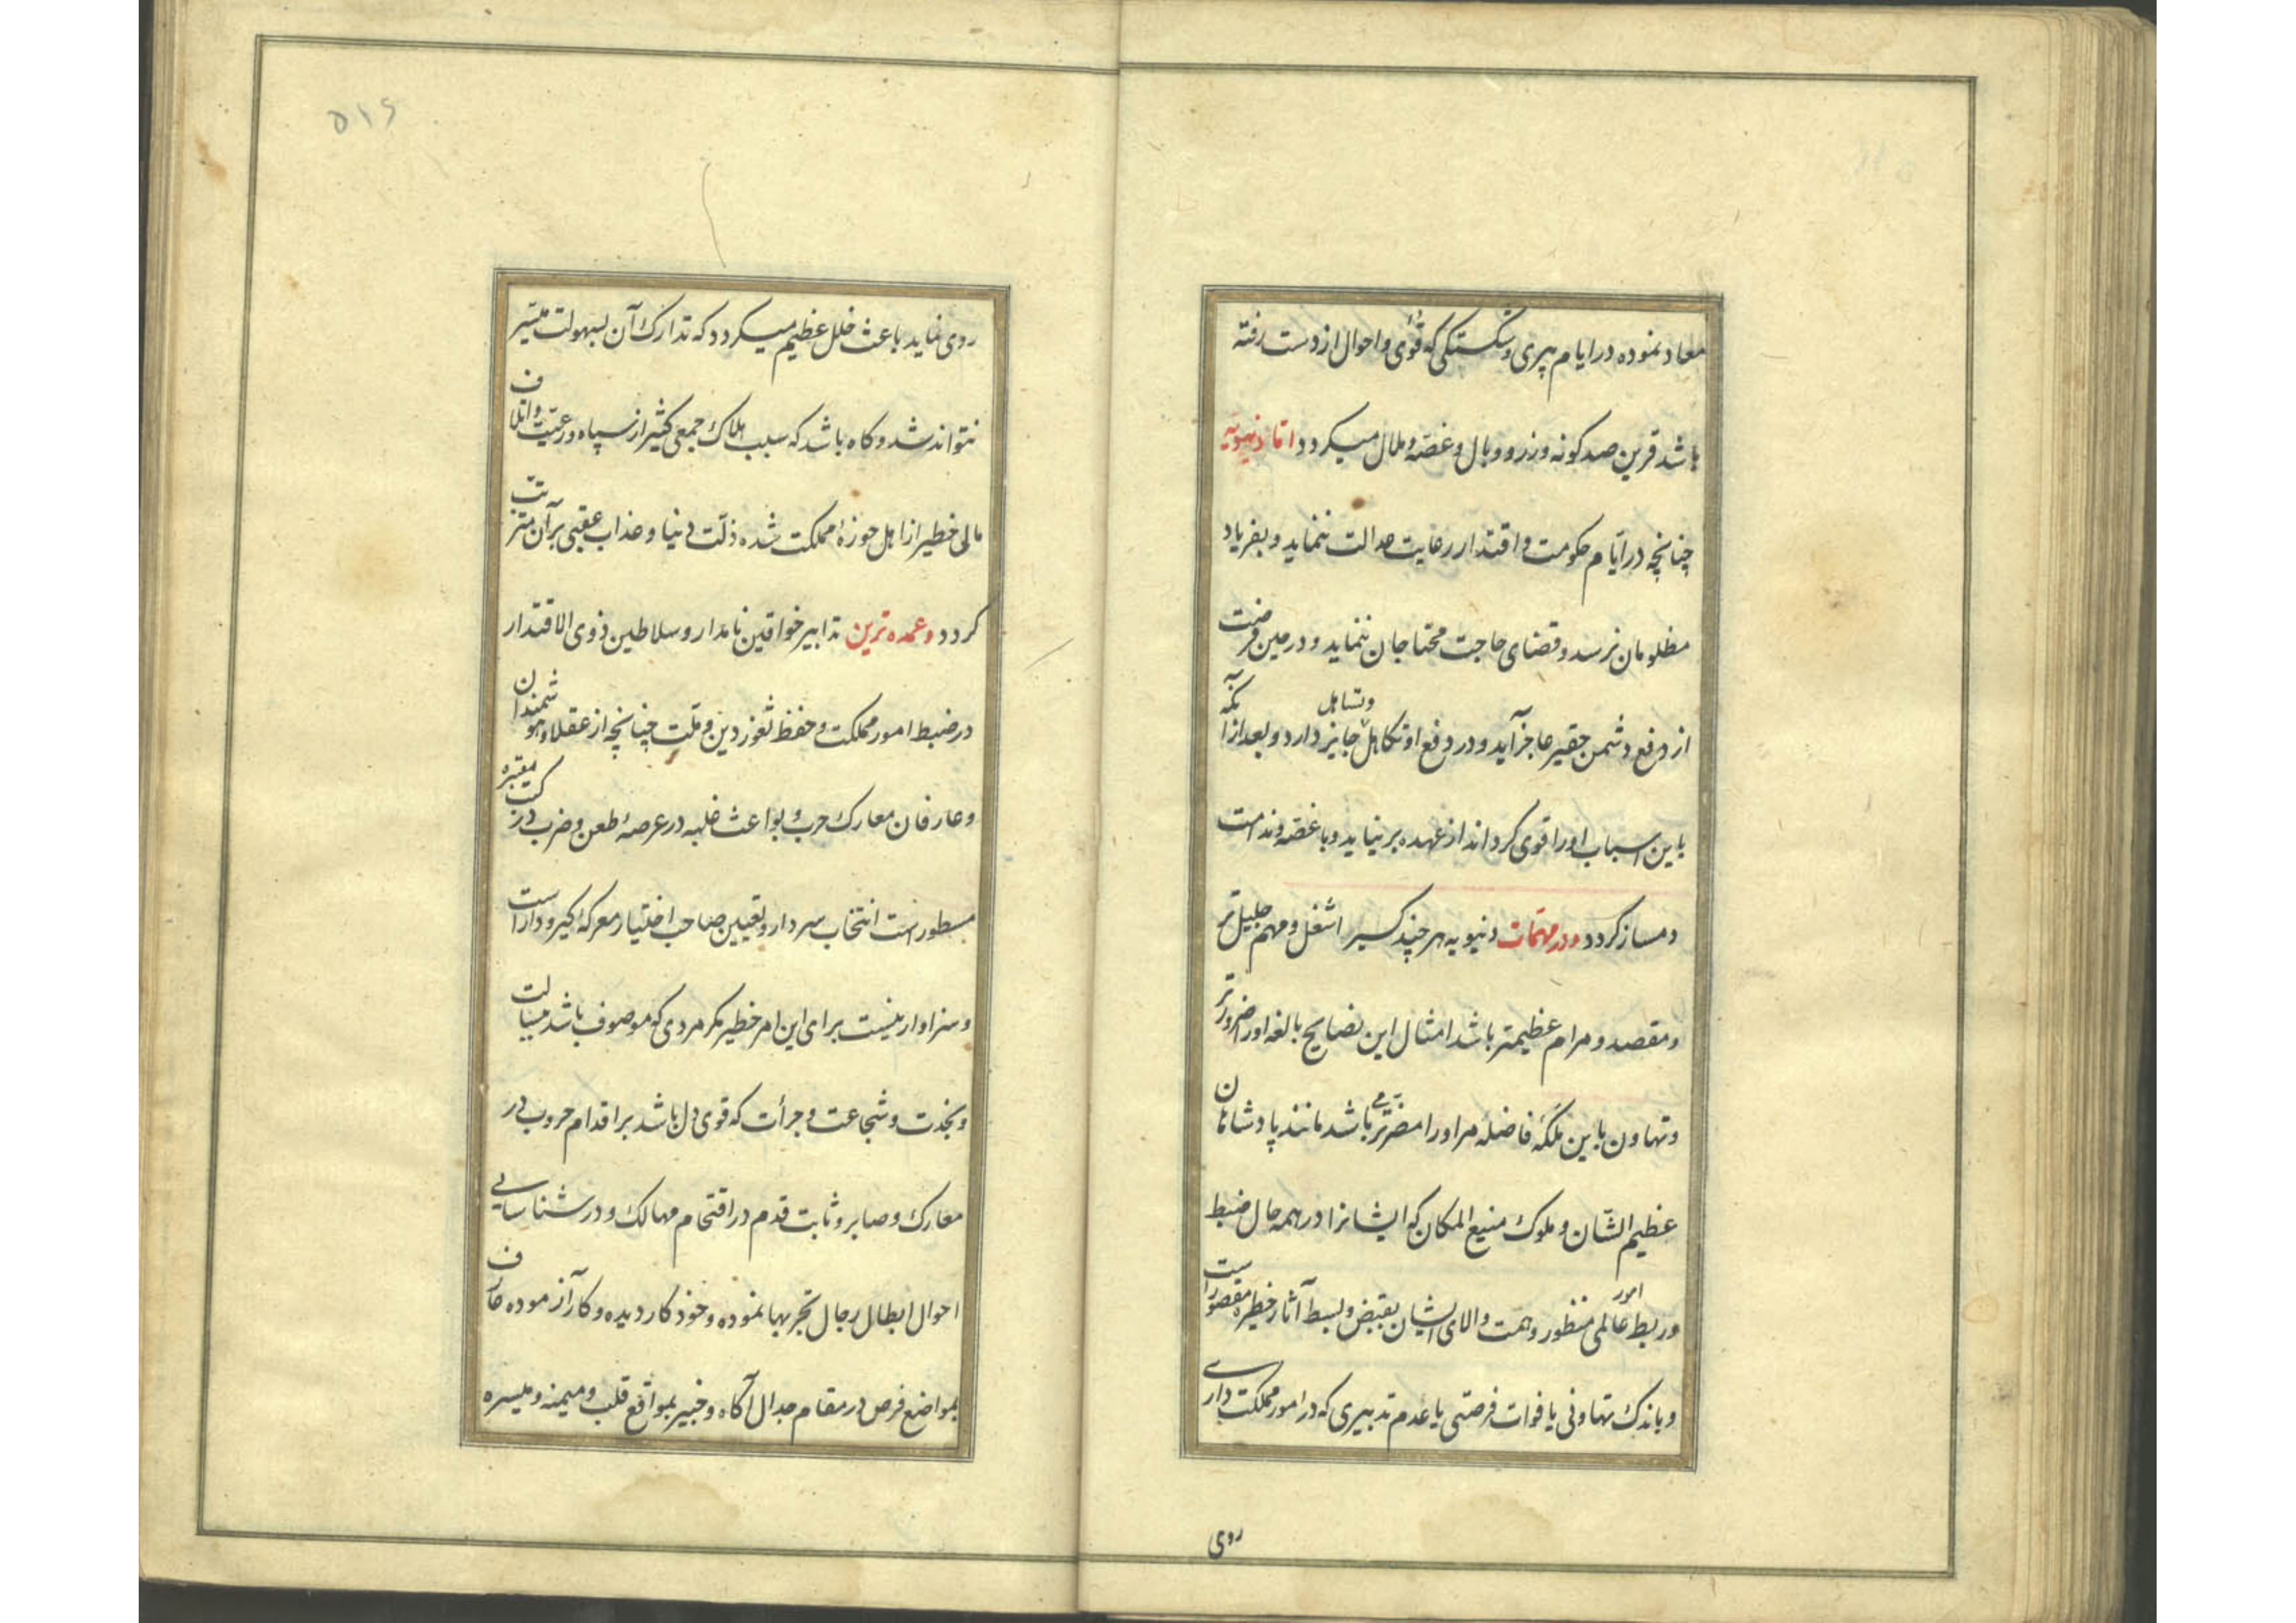 معاد نموده در ایام پیری و شکستگی که قوی و احوال از دست رفته
باشد قرین صد کونه وزر و وبال و غصّه و ملال میکردد امّا دنیویه
چنانچه در ایّام حکومت و اقتدار رعایت عدالت ننماید و بفریاد
مظلومان نرسد و قضای حاجت محتاجان ننماید و در حین فرصت
از دفع دشمن حقیر عاجز آید و در دفع او تکاهل و تساهل جایز دارد و بعد از آنکه به
باین اسباب او را قوی کرداند از عهده بر نیاید و با غصّه و ندامت
دمساز کردد و در مهمّات دنیویه هر چند کسیرا شغل و مهم جلیل تر
و مقصد و مرام عظیمتر باشد امثال این نصایح بالغه او را ضرورتر
و تهاون باین ملکهٔ فاضله مر او را مضرّتر می باشد مانند پادشاهان
عظیم الشّان و ملوک منیع المکان که ایشانرا در همه حال ضبط
و ربط امور عالمی منظور و همّت والای ایشان بقبض و بسط آثار خطیره مقصور است
و باندک تهاونی یا فوات فرصتی یا عدم تدبیری که در امور مملکت داری
روی
۵۱۶
روی نماید باعث خلل عظیم میکردد که تدارک آن بسهولت میسّر
نتواند شد و کاه باشد که سبب هلاک جمعی کثیر از سپاه و رعیّت و اتلاف
مالی خطیر از اهل حوزهٔ مملکت شده ذلّت دنیا و عذاب عقبی بر آن مترتّب
کردد و عمده ترین تدابیر خواقین نامدار و سلاطین ذوی الاقتدار
در ضبط امور مملکت و حفظ ثغور دین و ملّت چنانچه از عقلا و هوشمندان
و عارفان معارک حرب و بواعث غلبه در عرصهٔ طعن و ضرب در کتب معتبره
مسطور است انتخاب سردار و تعیین صاحب اختیار معرکهٔ کیر و دار است
و سزاوار نیست برای این امر خطیر مکر مردی که موصوف باشد ببسالت
و نجدت و شجاعت و جرأت که قوی دل باشد بر اقدام حروب در
معارک و صابر و ثابت قدم در اقتحام مهالک و در شناسایی
احوال ابطال رجال تجربها نموده و خود کار دیده و کار آزموده عارف
بمواضع فرص در مقام جدال آکاه و خبیر بمواقع قلب و میمنه و میسره